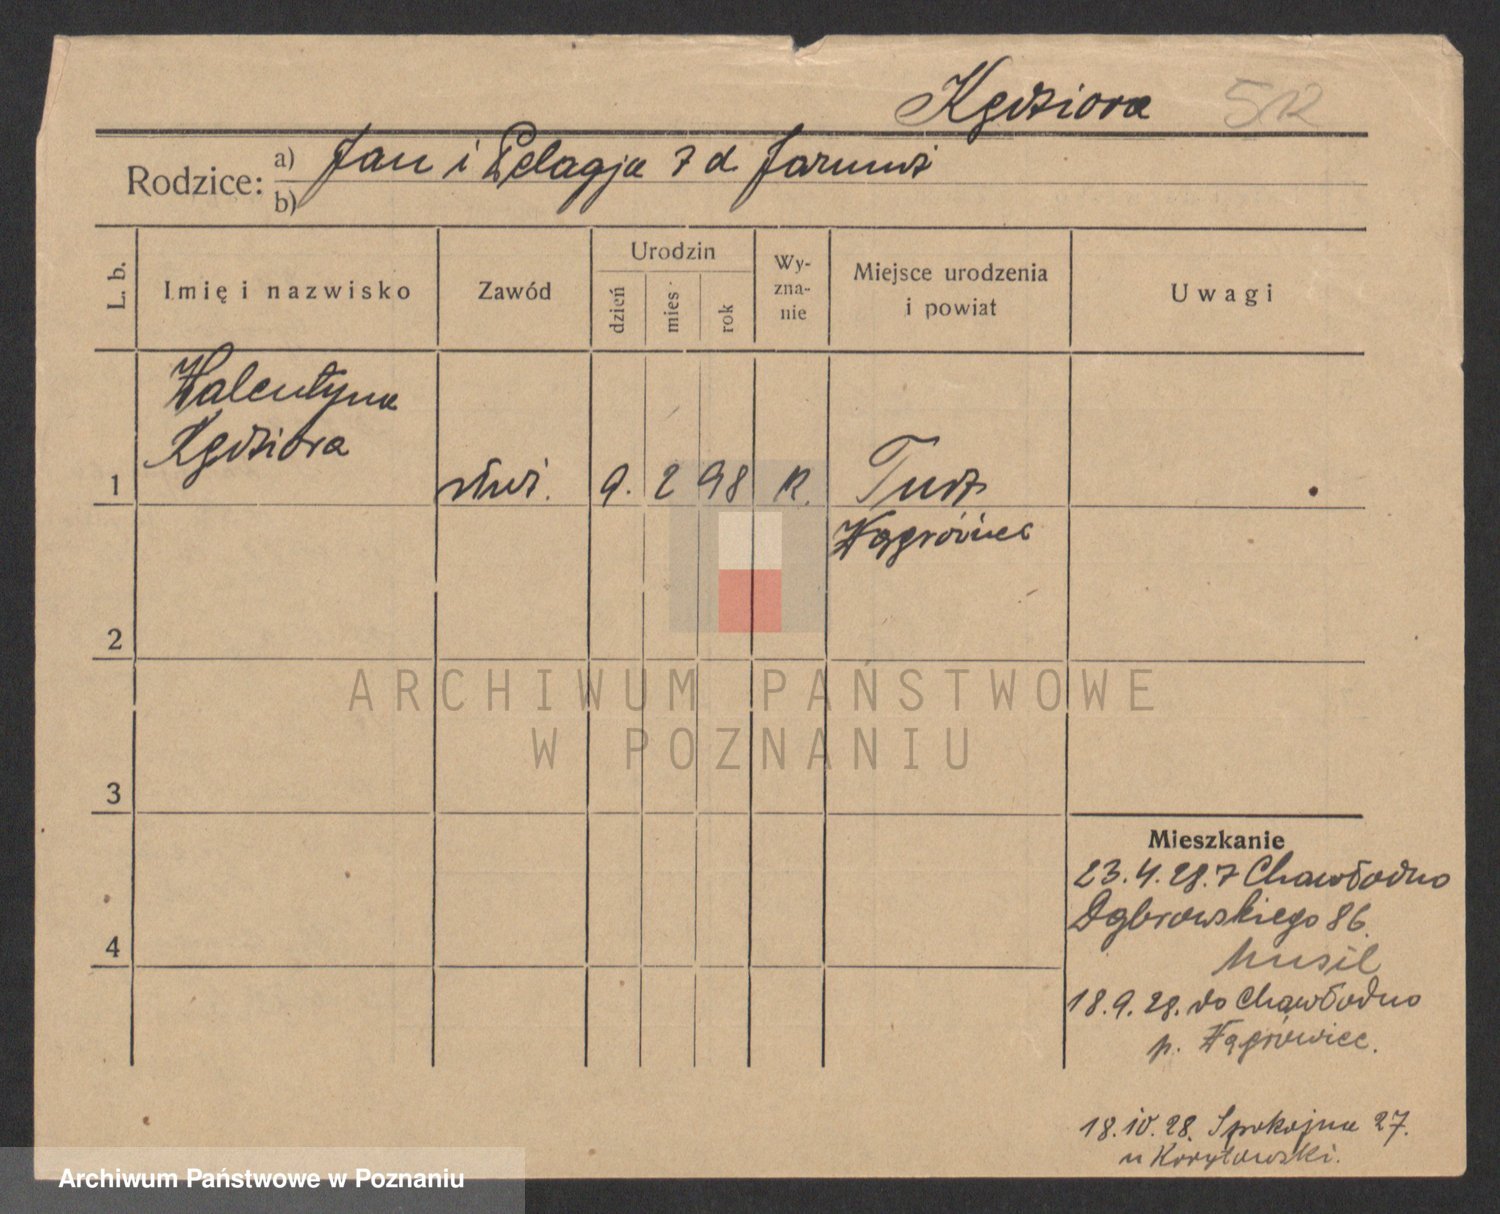 Kędziora 512
Rodzice: a) Jan i Pelagja z d.
b)
L. b.
Imię i nazwisko
Zawód
Urodzin
dzień
mies.
rok
Wy-
zna-
nie
Miejsce urodzenia
i powiat
Uwagi
Walentyna
Kędziora
1 służ. 9. 2 98 R.
Wągrówiec
2
3
4
ARCHIWUM PAŃSTWOWE
W POZNANIU
Mieszkanie
23.4.28. z Chawłodno
Dąbrowskiego 86.
Musil
18.9.28. do Chawłodno
p. Wągrówiec.
18.10.28. Spokojna 27.
u Koryłowski.
Archiwum Państwowe w Poznaniu